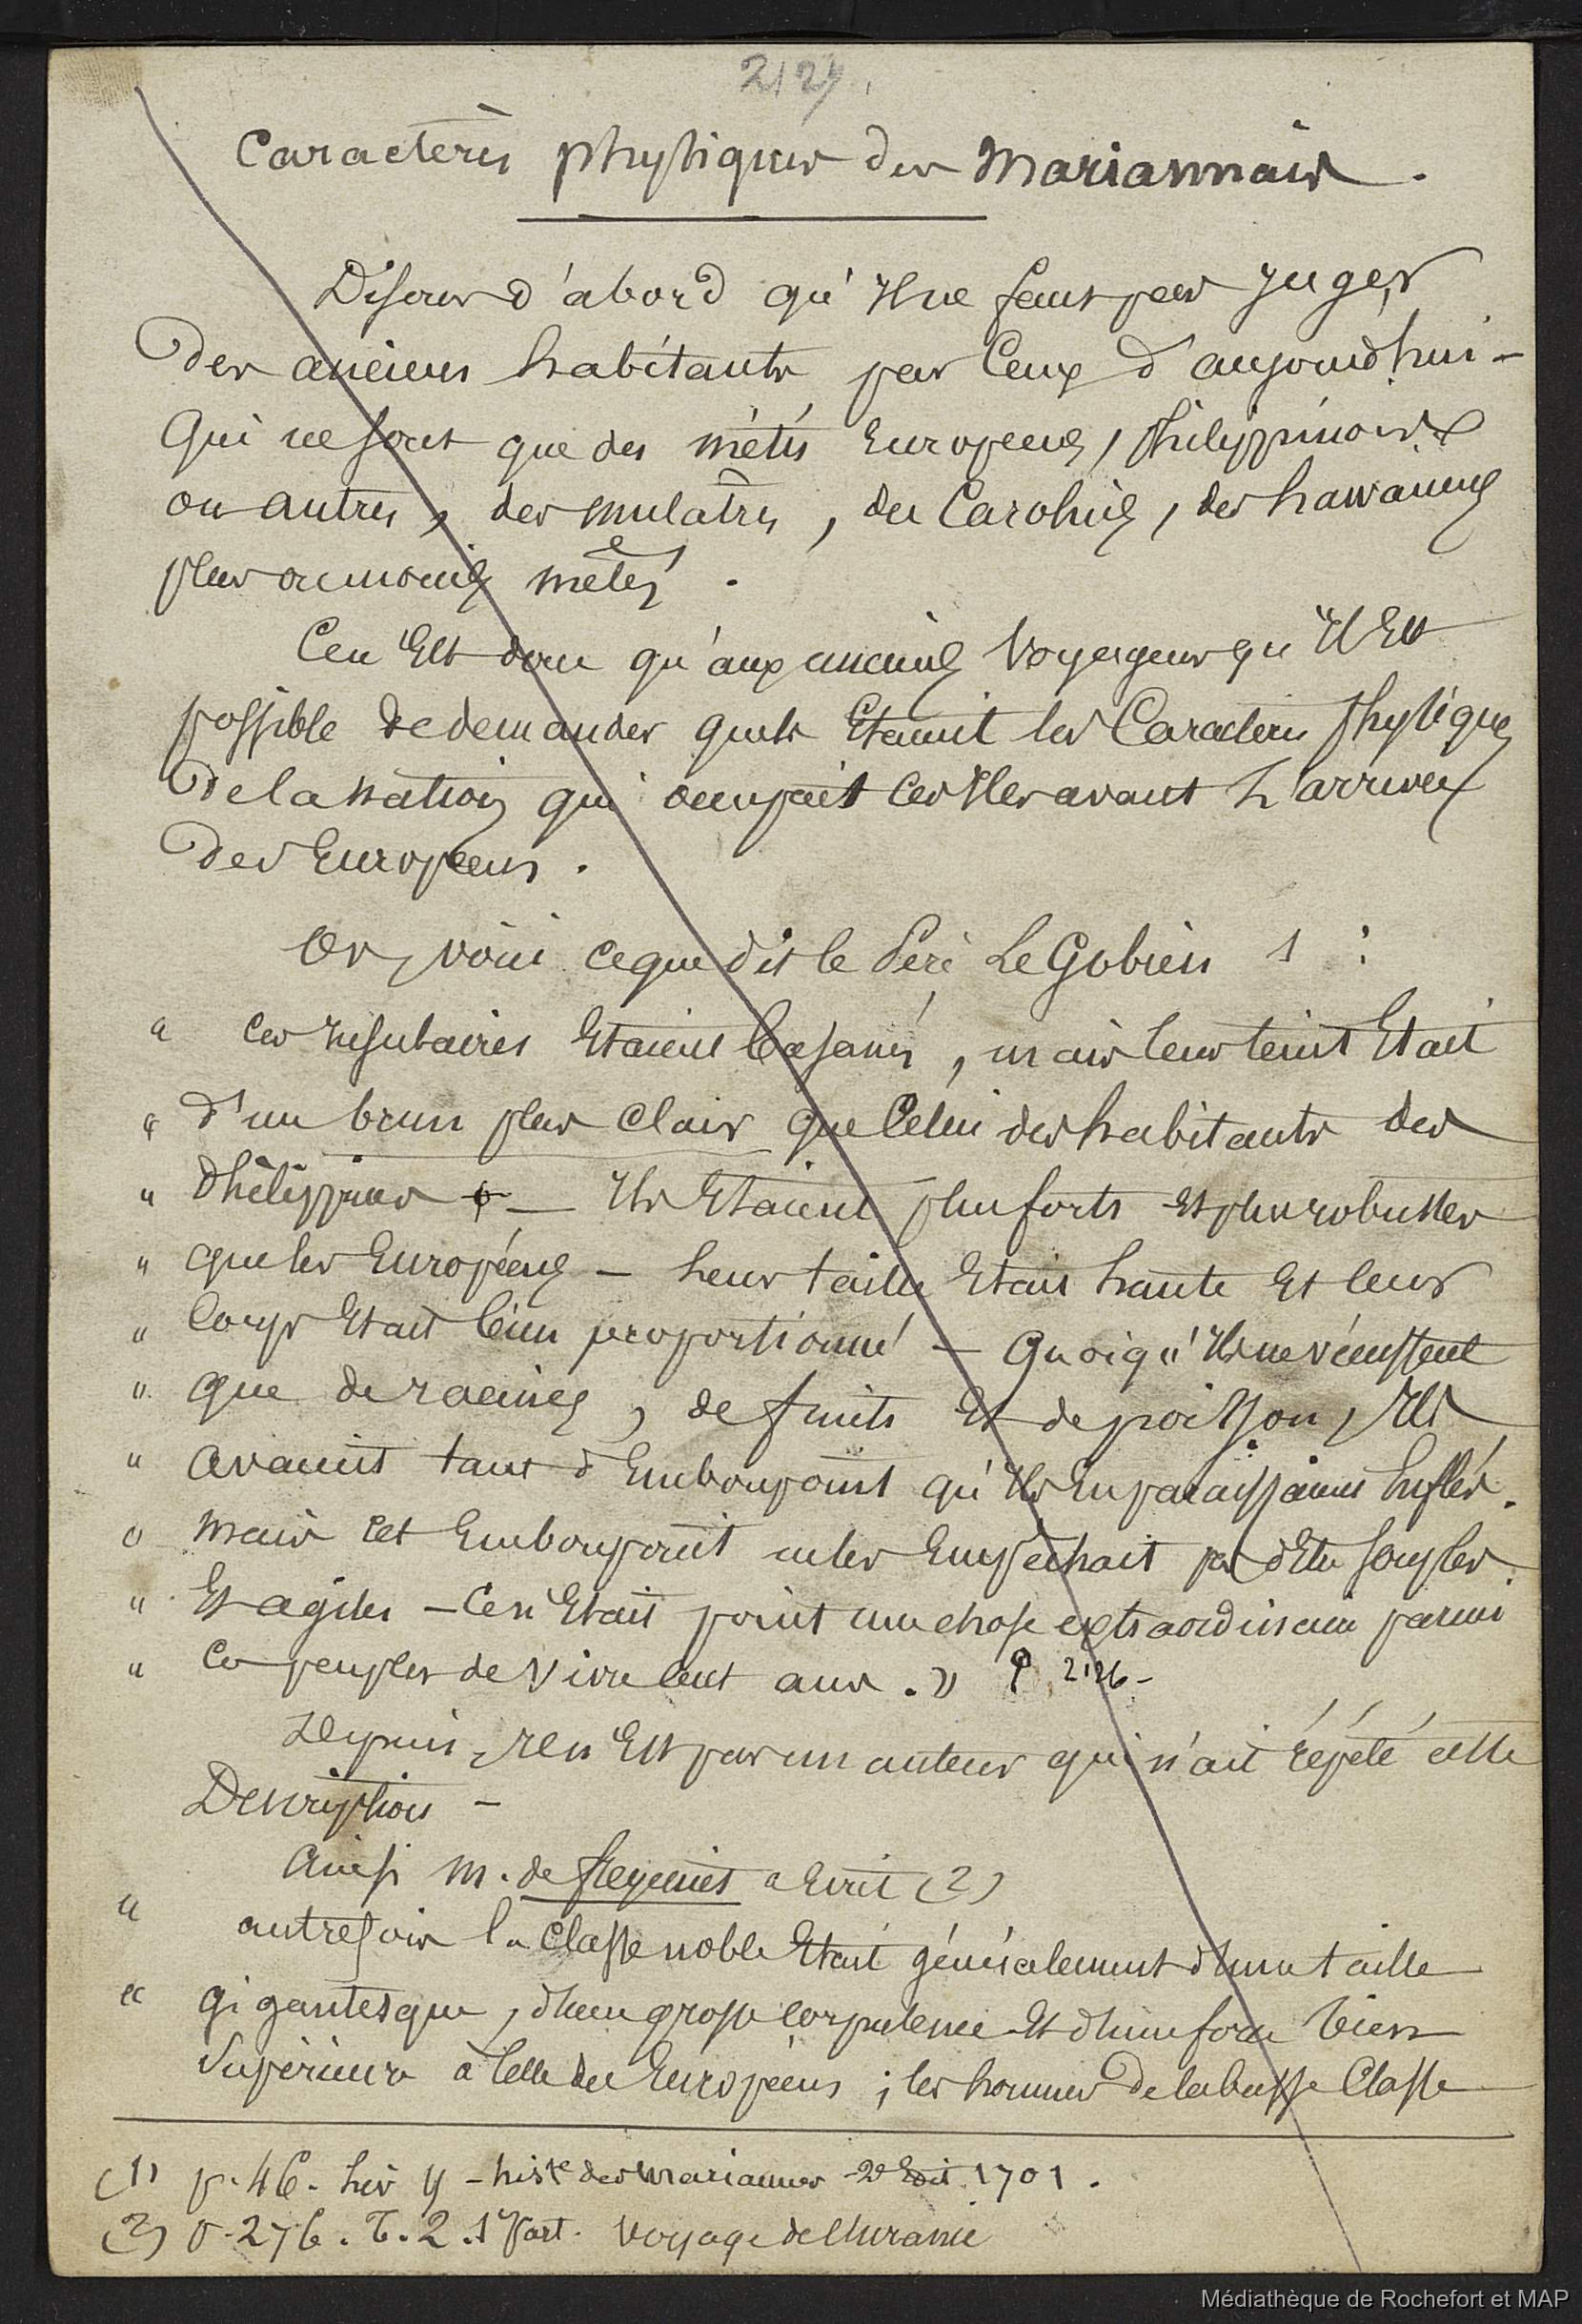 2127.
Caractères physiques des Mariannais.
Disons d'abord qu'il ne faut pas juger
des anciens habitants par ceux d'aujourd'hui -
qui ne sont que des métis Européens, philippinois
ou autres, des mulâtres, des Carolins, des hawaiiens
plus ou moins métis.
Ce n'est donc qu'aux anciens voyageurs qu'il est
possible de demander quels étaient les Caractères physiques
de la nation qui occupait ces Iles avant L'arrivée
des Européens.
Or, voici ce que dit le Père Le Gobien 1 :
" ces Insulaires Etaient basanés, mais leur teint Etait
" d'un brun plus clair que Celui des habitants des
" Philippines — Ils Etaient plus forts et plus robustes
" que les Européens — Leur taille Etait haute Et leur
" Corps Etait bien proportionné — Quoiqu'Ils ne vécussent
" que de racines, de fruits Et de poisson, Ils
" avaient tant d'Embonpoint qu'Ils En paraissaient Enflés.
" mais cet Embonpoint ne les Empêchait pas d'Etre souples
" Et agiles — Ce n'Etait point une chose extraordinaire parmi
" Ces peuples de vivre cent ans. » P 2126 -
Depuis, Il n'Est pas un auteur qui n'ait répété cette
Description —
Ainsi M. de freycinet a Ecrit (2)
" autrefois la Classe noble Etait généralement d'une taille
" gigantesque, d'une grosse corpulence Et d'une force bien
Supérieure à Celle des Européens ; les hommes de la basse Classe
(1) p. 46. Liv 4 - hist.e des Mariannes - 2e Edit. 1701.
(2) P. 276. T. 2. 1e Part. Voyage de l'Uranie
Médiathèque de Rochefort et MAP